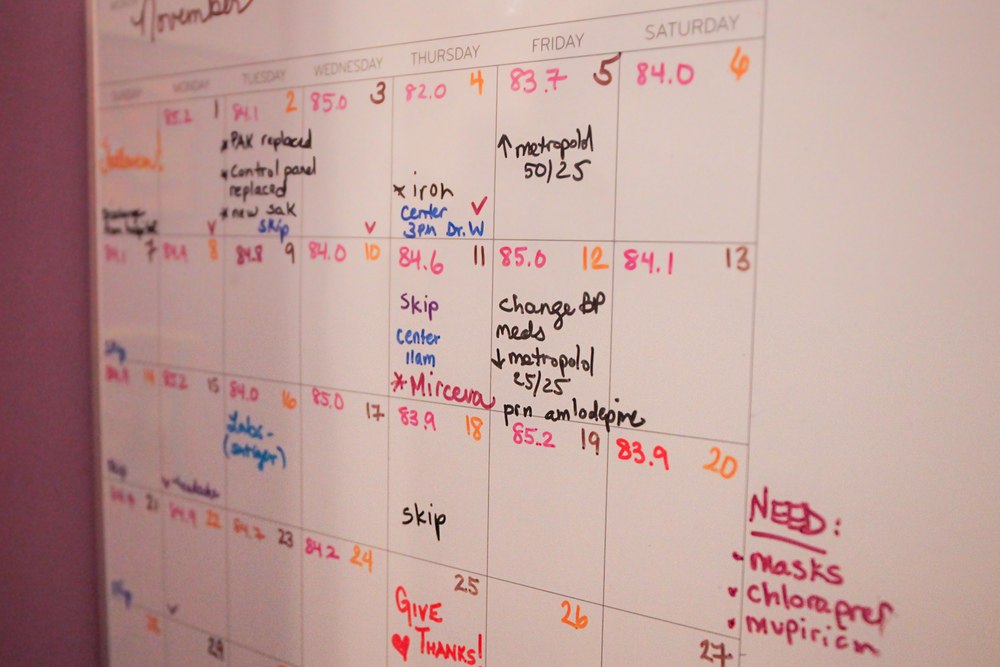 November
SUNDAY MONDAY TUESDAY WEDNESDAY THURSDAY FRIDAY SATURDAY
85.2 1
84.1 2
* PAK replaced
* Control panel
replaced
* new sak
skip
85.0 3
82.0 4
* iron
Center
3pm Dr. W
83.7 5
↑ metropolol
50/25
84.0 6
84.1 7
84.4 8
84.8 9
84.0 10
84.6 11
Skip
Center
11am
* Mircera
85.0 12
change BP
meds
↓ metropolol
25/25
prn amlodepine
84.1 13
14
85.2 15
84.0 16
Labs-
85.0 17
83.9 18
skip
85.2 19
83.9 20
21
84.9 22
84.2 23
84.2 24
25
GIVE
♥ THANKS!
26
27
29
NEED:
• masks
• chloraprep
• mupiricin